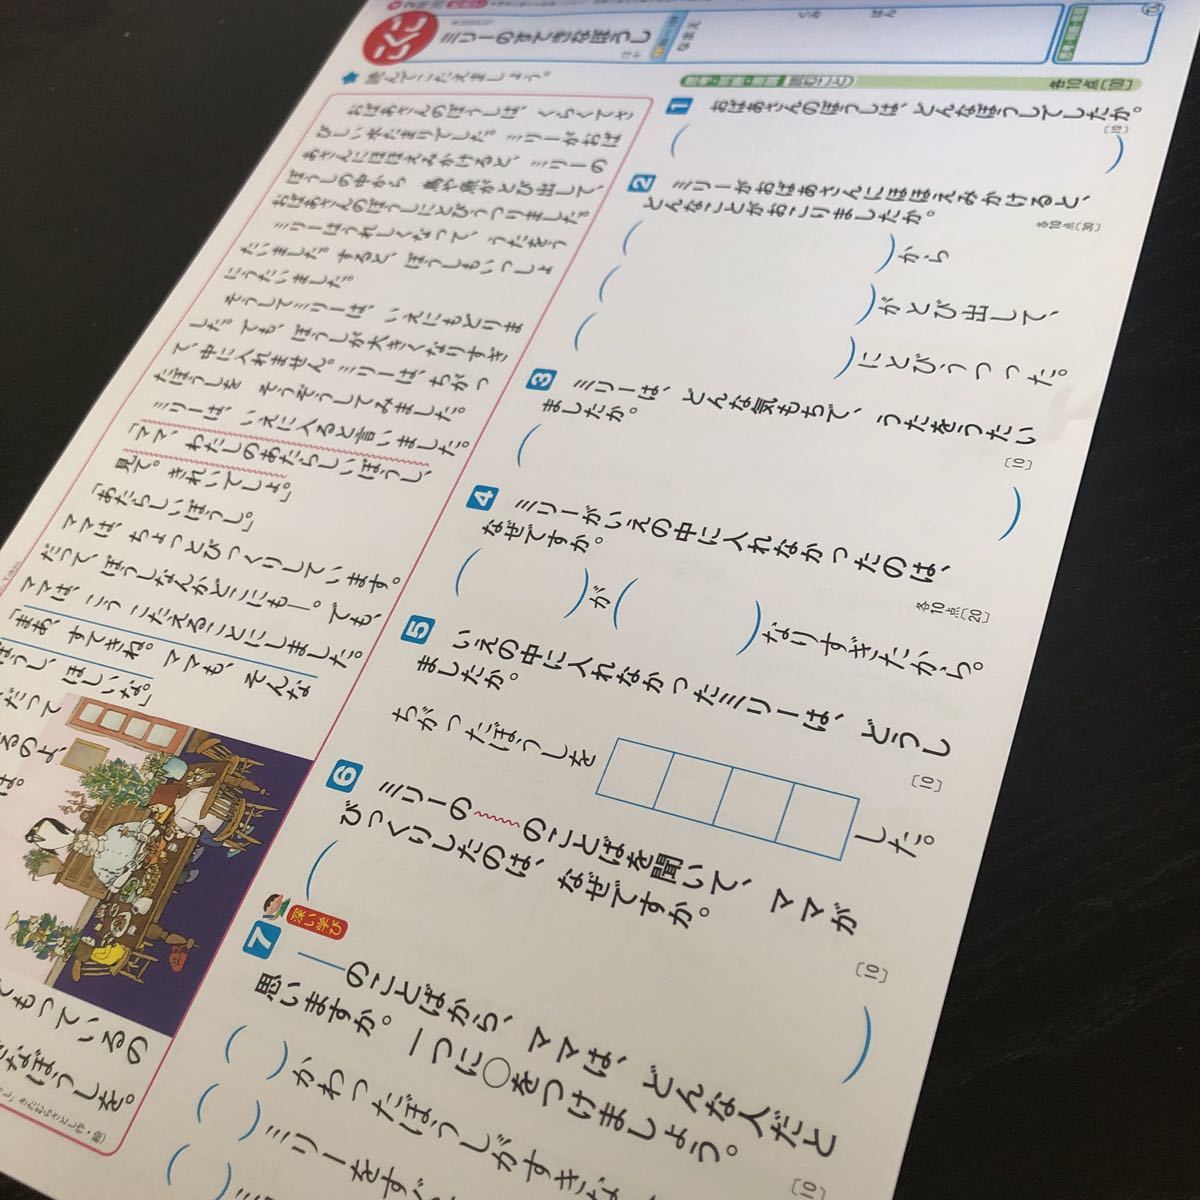 こくご
ミリーのすてきなぼうし
なまえ
くみ
ばん
読んでこたえましょう。
おばあさんのぼうしは、くらくてさ
びしい水たまりでした。ミリーがおば
あさんにほほえみかけると、ミリーの
ぼうしの中から 鳥や魚がとび出して、
おばあさんのぼうしにとびうつりました。
ミリーはうれしくなって、うたをう
たいました。すると、ぼうしもいっしょ
にうたいました。
そうしてミリーは、いえにもどりま
した。でも、ぼうしが大きくなりすぎ
て、中に入れません。ミリーは、ちがっ
たぼうしを そうぞうしてみました。
ミリーは、いえに入ると言いました。
「ママ、わたしのあたらしいぼうし、
見て。きれいでしょ。」
「あたらしいぼうし。」
ママは、ちょっとびっくりしています。
だって、ぼうしなんかどこにも―。でも、
ママは、こう こたえることにしました。
「まあ、すてきね。ママも、そんな
ぼうし、ほしいな。」
だって
るのよ、
は。
てもっているの
なぼうしを。
きたむらさとし作・絵)
読むこと
各10点〔100〕
1 おばあさんのぼうしは、どんなぼうしでしたか。
〔10〕
2 ミリーがおばあさんにほほえみかけると、
どんなことがおこりましたか。
各10点〔30〕
( )から
( )がとび出して、
( )にとびうつった。
3 ミリーは、どんな気もちで、うたをうたい
ましたか。
〔10〕
4 ミリーがいえの中に入れなかったのは、
なぜですか。
各10点〔20〕
( )が( )なりすぎたから。
5 いえの中に入れなかったミリーは、どうし
ましたか。
〔10〕
ちがったぼうしを
した。
6 ミリーの のことばを聞いて、ママが
びっくりしたのは、なぜですか。
〔10〕
深い学び
7 ――のことばから、ママは、どんな人だと
思いますか。一つに○をつけましょう。
〔10〕
( )かわったぼうしがすきな
( )ミリーをすべ
( )ミリー